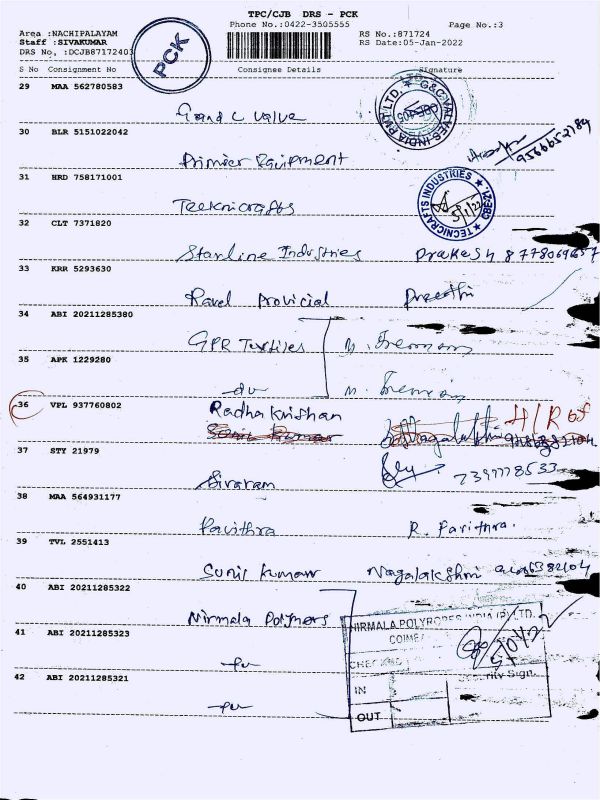 TPC/CJB DRS - PCK
Phone No.:0422-3505555 Page No.:3
Area :NACHIPALAYAM RS No.:871724
Staff :SIVAKUMAR RS Date:05-Jan-2022
DRS No, :DCJB87172403
PCK
S No Consignment No Consignee Details Signature
29 MAA 562780583
Grand C Valve
G&C VALVES INDIA PVT. LTD.
30 BLR 5151022042
Primier Equipment
9566652184
31 HRD 758171001
Teeknicrafts
TECNICRAFTS INDUSTRIES
5/1/22
32 CLT 7371820
Starline Industries Prakesh 8778069657
33 KRR 5293630
Ravel Provicial Preethi
34 ABI 20211285380
GPR Textiles
35 APK 1229280
-do-
36 VPL 937760802
Radha Krishnan H/R of
Sunil Kumar
37 STY 21979
Sivaram
38 MAA 564931177
Pavithra R. Pavithra.
39 TVL 2551413
Sunil Kumar Nagalakshmi
40 ABI 20211285322
Nirmala Polymers
NIRMALA POLYROPES INDIA (P) LTD.
41 ABI 20211285323
-do-
Sign.
42 ABI 20211285321
IN
-do-
OUT